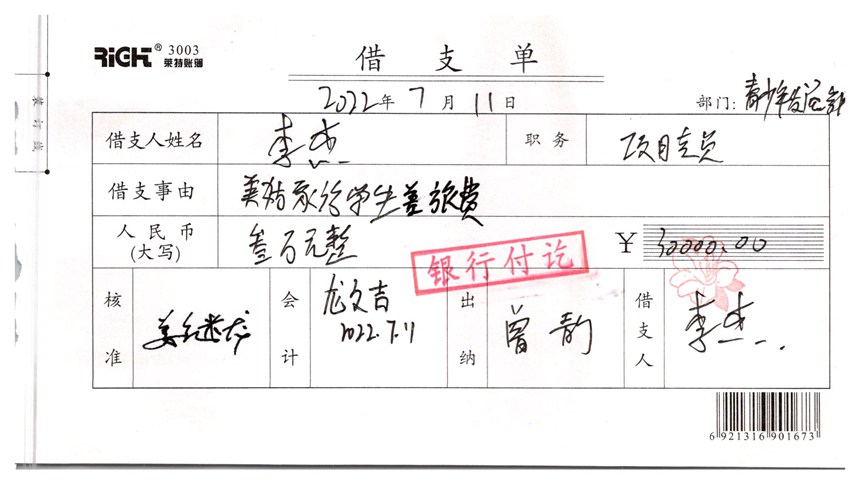 RiGHT® 3003
莱特账簿
借支单
2022年7月11日
部门:青少年发展部
装订线
借支人姓名 李杰 职务 项目专员
借支事由 学生差旅费
人民币(大写) 叁万元整 ¥30000.00
银行付讫
核准 会计 龙文吉 2022.7.11 出纳 曾韵 借支人 李杰
6 921316 901673